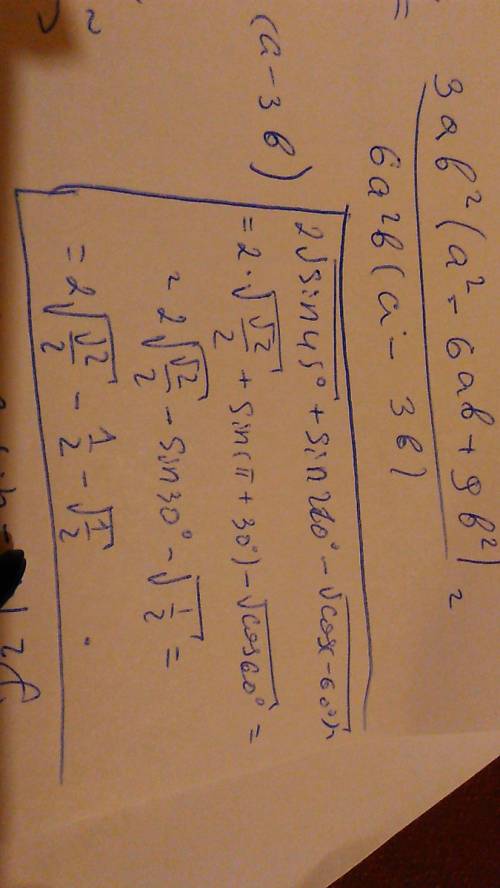 =
3ab²(a² - 6ab + 9b²)
6a²b(a - 3b)
=
(a - 3b)
2√sin45° + sin210° - √cos(-60°) =
= 2·√(√2/2) + sin(π + 30°) - √cos60° =
= 2√(√2/2) - sin30° - √(1/2) =
= 2√(√2/2) - 1/2 - √(1/2)